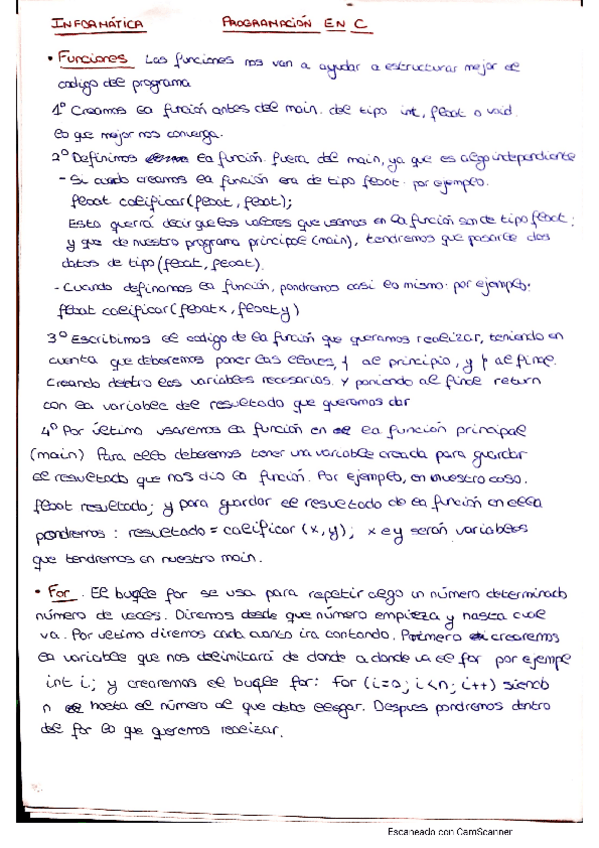 INFORMÁTICA PROGRAMACIÓN EN C
• Funciones Las funciones nos van a ayudar a estructurar mejor el
codigo del programa
1º Creamos la función antes del main. del tipo int, float o void.
lo que mejor nos convenga.
2º Definimos la función. fuera del main, ya que es algo independiente
- Si cuando creamos la función era de tipo float. por ejemplo.
float calificar(float, float);
Esto querrá decir que los valores que usemos en la función son de tipo float;
y que de nuestro programa principal (main), tendremos que pasarle dos
datos de tipo (float, float).
- Cuando definamos la función, pondremos casi lo mismo. por ejemplo.
float calificar(float x, float y)
3º Escribimos el codigo de la función que queramos realizar, teniendo en
cuenta que deberemos poner las llaves, { al principio, y } al final.
Creando dentro las variables necesarias. Y poniendo al final return
con la variable del resultado que queramos dar
4º Por último usaremos la función en la función principal
(main) Para ello deberemos tener una variable creada para guardar
el resultado que nos dio la función. Por ejemplo, en nuestro caso.
float resultado; y para guardar el resultado de la función en ella
pondremos : resultado = calificar (x, y); x e y serán variables
que tendremos en nuestro main.
• For. El bucle for se usa para repetir algo un número determinado
número de veces. Diremos desde que número empieza y hasta cual
va. Por ultimo diremos cada cuanto ira contando. Primero crearemos
la variable que nos delimitará de donde a donde va el for por ejemplo
int i; y crearemos el bucle for: for (i=0; i<n; i++) siendo
n hasta el número al que debe llegar. Despues pondremos dentro
del for lo que queremos realizar.
Escaneado con CamScanner